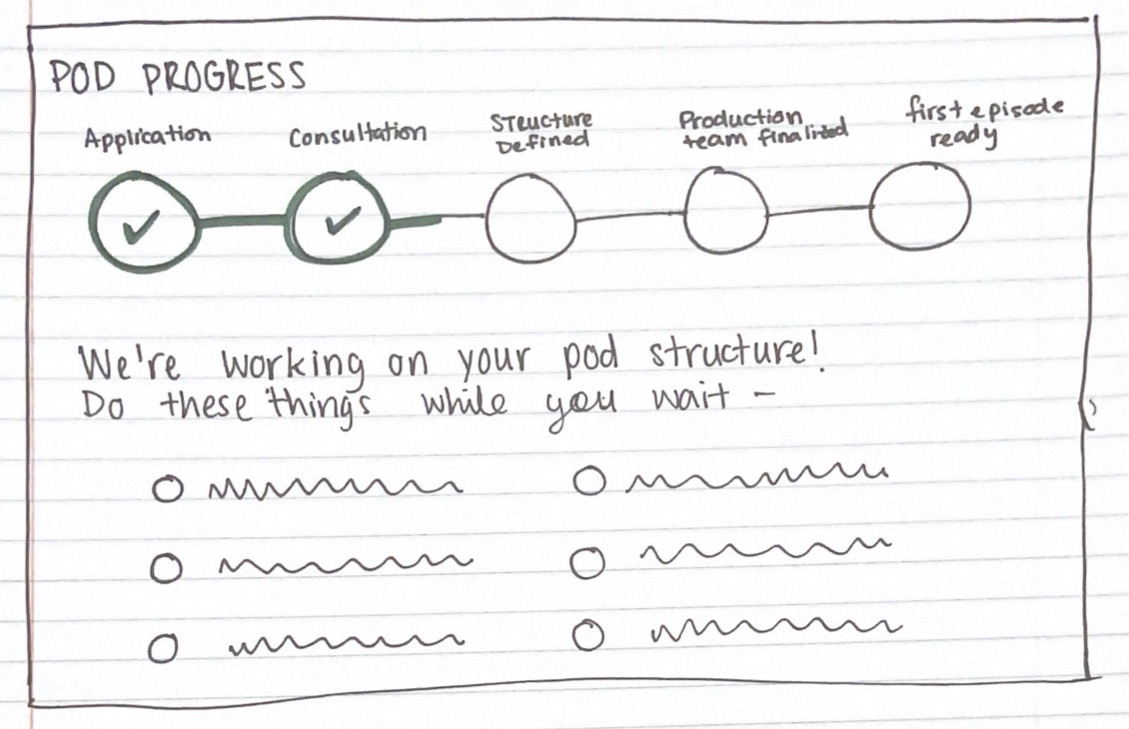 POD PROGRESS
Application
Consultation
Structure
Defined
Production
team finalized
first episode
ready
We're working on your pod structure!
Do these things while you wait –